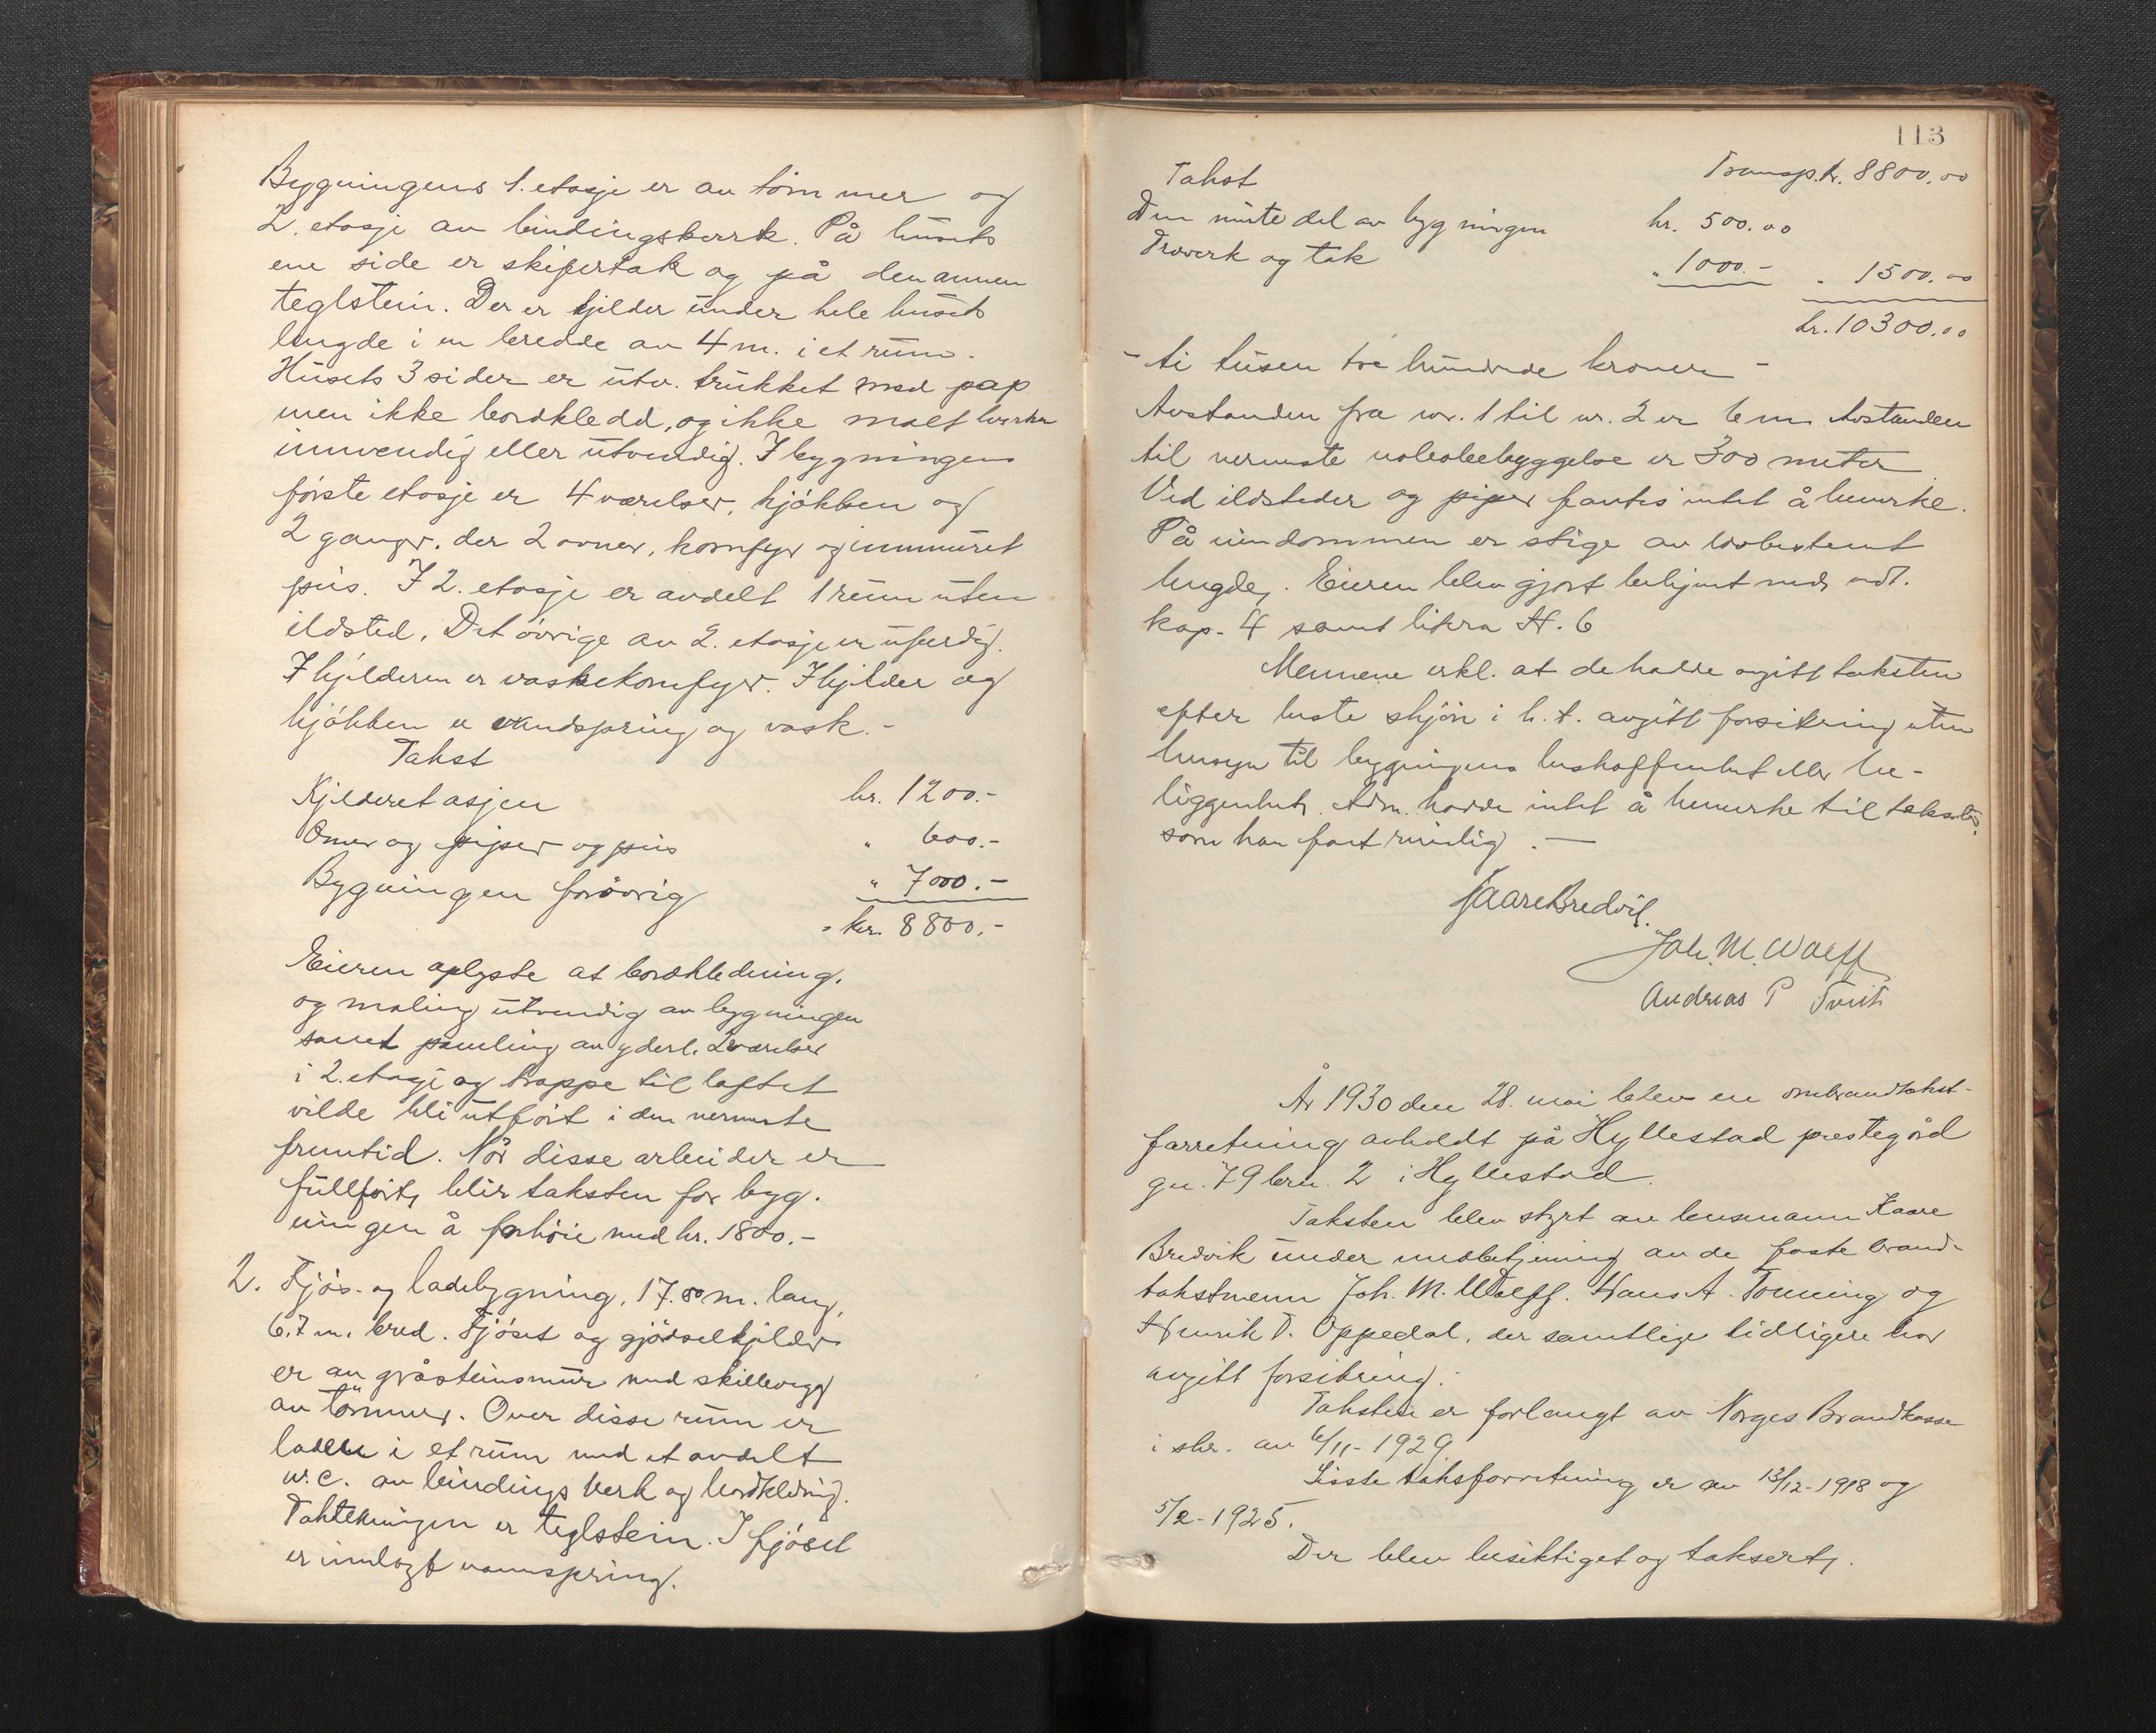 Bygningens 1. etasje er av tömmer og
2. etasje av bindingsverrk. På husets
ene side er skifertak og på den annen
teglstein. Der er kjelder under hele husets
lengde i en bredde av 4 m. i et rum.
Husets 3 sider er utv. trukket med pap
men ikke bordkledd, og ikke malt hverken
innvendig eller utvendig. I bygningens
förste etasje er 4 værelser, kjökken og
2 ganger, der 2 ovner, komfyr og innmuret
peis. I 2. etasje er avdelt 1 rum uten
ildsted. Det övrige av 2. etasje er uferdig.
I kjelderen er vaskekomfyr. I kjelder og
kjökken er vandspring og vask.-
Takst
Kjelderetasjen kr. 1200.-
Ovner og piper og peis " 600.-
Bygningen forövrig " 7000.-
= kr. 8800.-
Eieren oplyste at bordkledning,
og maling utvendig av bygningen
samt paneling av yderl. 2 værelser
i 2. etasje og trappe til loftet
vilde bli utfört i den nermeste
fremtid. Når disse arbeider er
fullfört, blir taksten for byg-
ningen å forhöie med kr. 1800.-
2. Fjös- og ladebygning, 17.80 m. lang,
6.7 m. bred. Fjöset og gjödselkjelder
er av gråsteinsmur med skillevegg
av tömmer. Over disse rum er
laden i et rum med et avdelt
w.c. av bindingsverk og bordkledning.
Taktekningen er teglstein. I fjöset
er innlagt vannspring.
113
Transp. kr. 8800,00
Takst
Den murte del av bygningen kr. 500.00
Treverk og tak " 1000.- " 1500.00
kr. 10300.00
- ti tusen tre hundrede kroner -
Avstanden fra nr. 1 til nr. 2 er 6 m. Avstanden
til nermeste nabobebyggelse er 300 meter
Ved ildsteder og piper fantes intet å bemerke.
På eiendommen er stige av lovbestemt
lengde. Eieren blev gjort bekjent med vedt.
kap. 4 samt litra H. 6
Mennene erkl. at de hadde avgitt taksten
efter beste skjön i h. t. avgitt forsikring uten
hensyn til bygningens beskaffenhet eller be-
liggenhet. Adm. hadde intet å bemerke til taksten
som han fant rimelig. -
Kaare Bredvik.
Joh. M. Wolff
Andreas P Tveit
År 1930 den 28. mai blev en ombrandtakst-
forretning avholdt på Hyllestad prestegård
gn. 79 brn. 2 i Hyllestad.
Taksten blev styrt av lensmann Kaare
Bredvik under medbetjening av de faste brand-
takstmenn Joh. M. Wolff. Hans A. Tonning og
Henrik T. Oppedal, der samtlige tidligere har
avgitt forsikring.-
Taksten er forlangt av Norges Brandkasse
i skr. av 6/11-1929.
Sisste takstforretning er av 13/12-1918 og
5/2-1925.
Der blev besiktiget og taksert,.